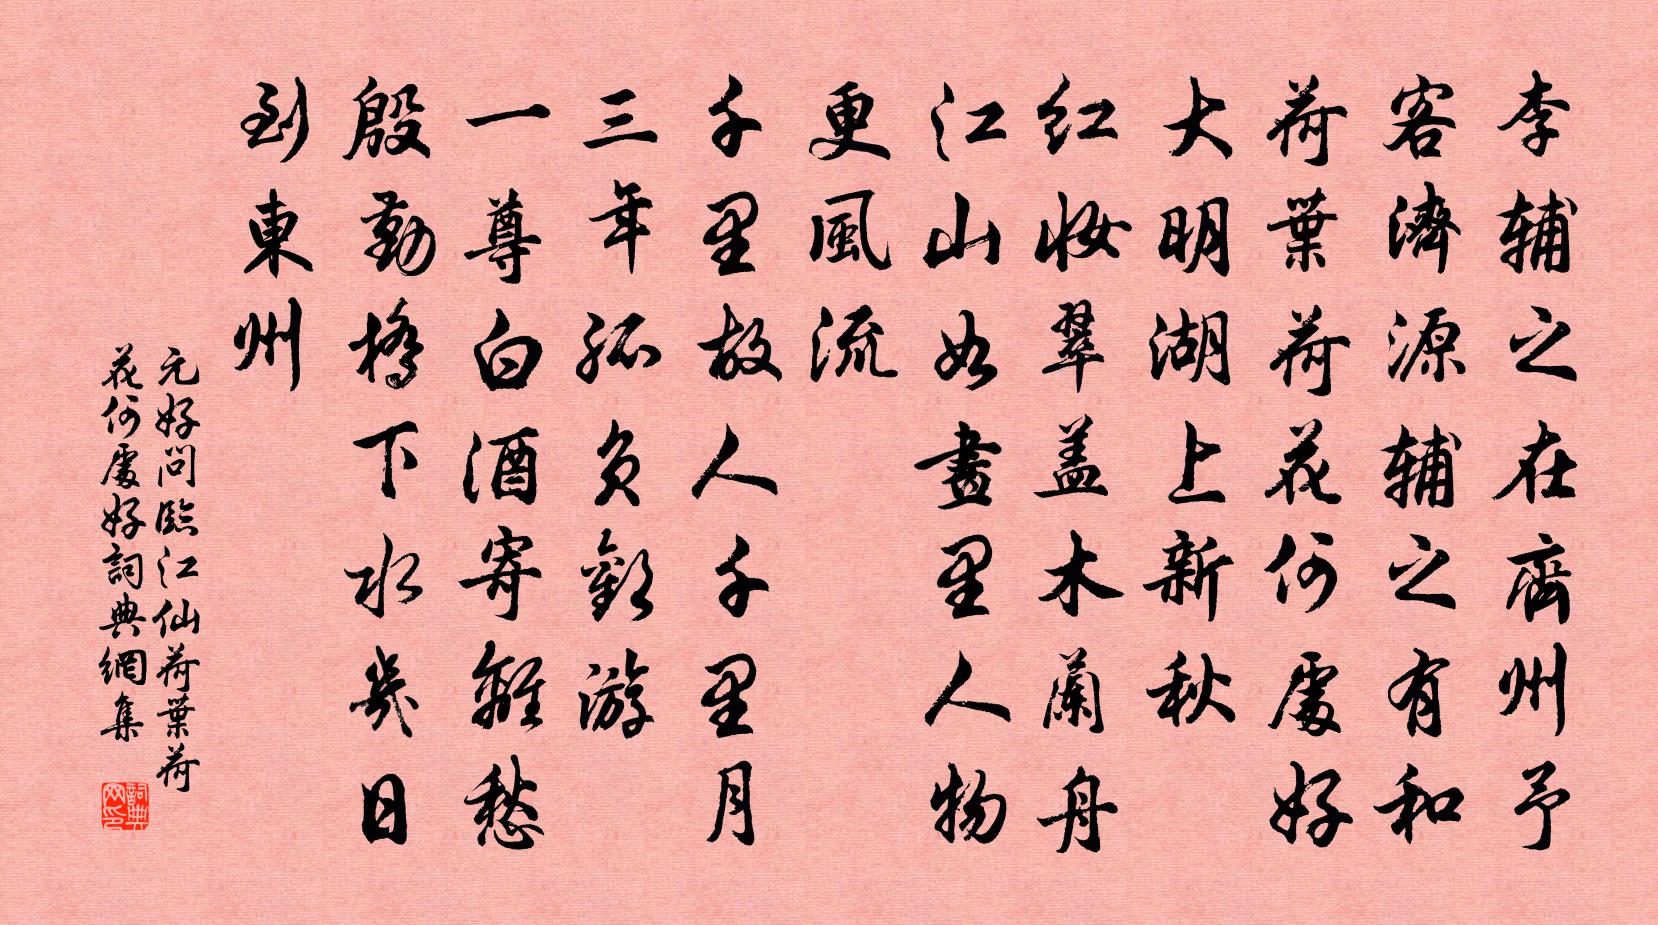 李辅之在齊州予
客濟源辅之有和
荷葉荷花何處好
大明湖上新秋
红妆翠盖木蘭舟
江山如畫里人物
更風流
千里故人千里月
三年孤负歡游
一尊白酒寄離愁
殷勤橋下水幾日
到東州
元好問臨江仙荷葉荷
花何處好詞典網集
詞典网印